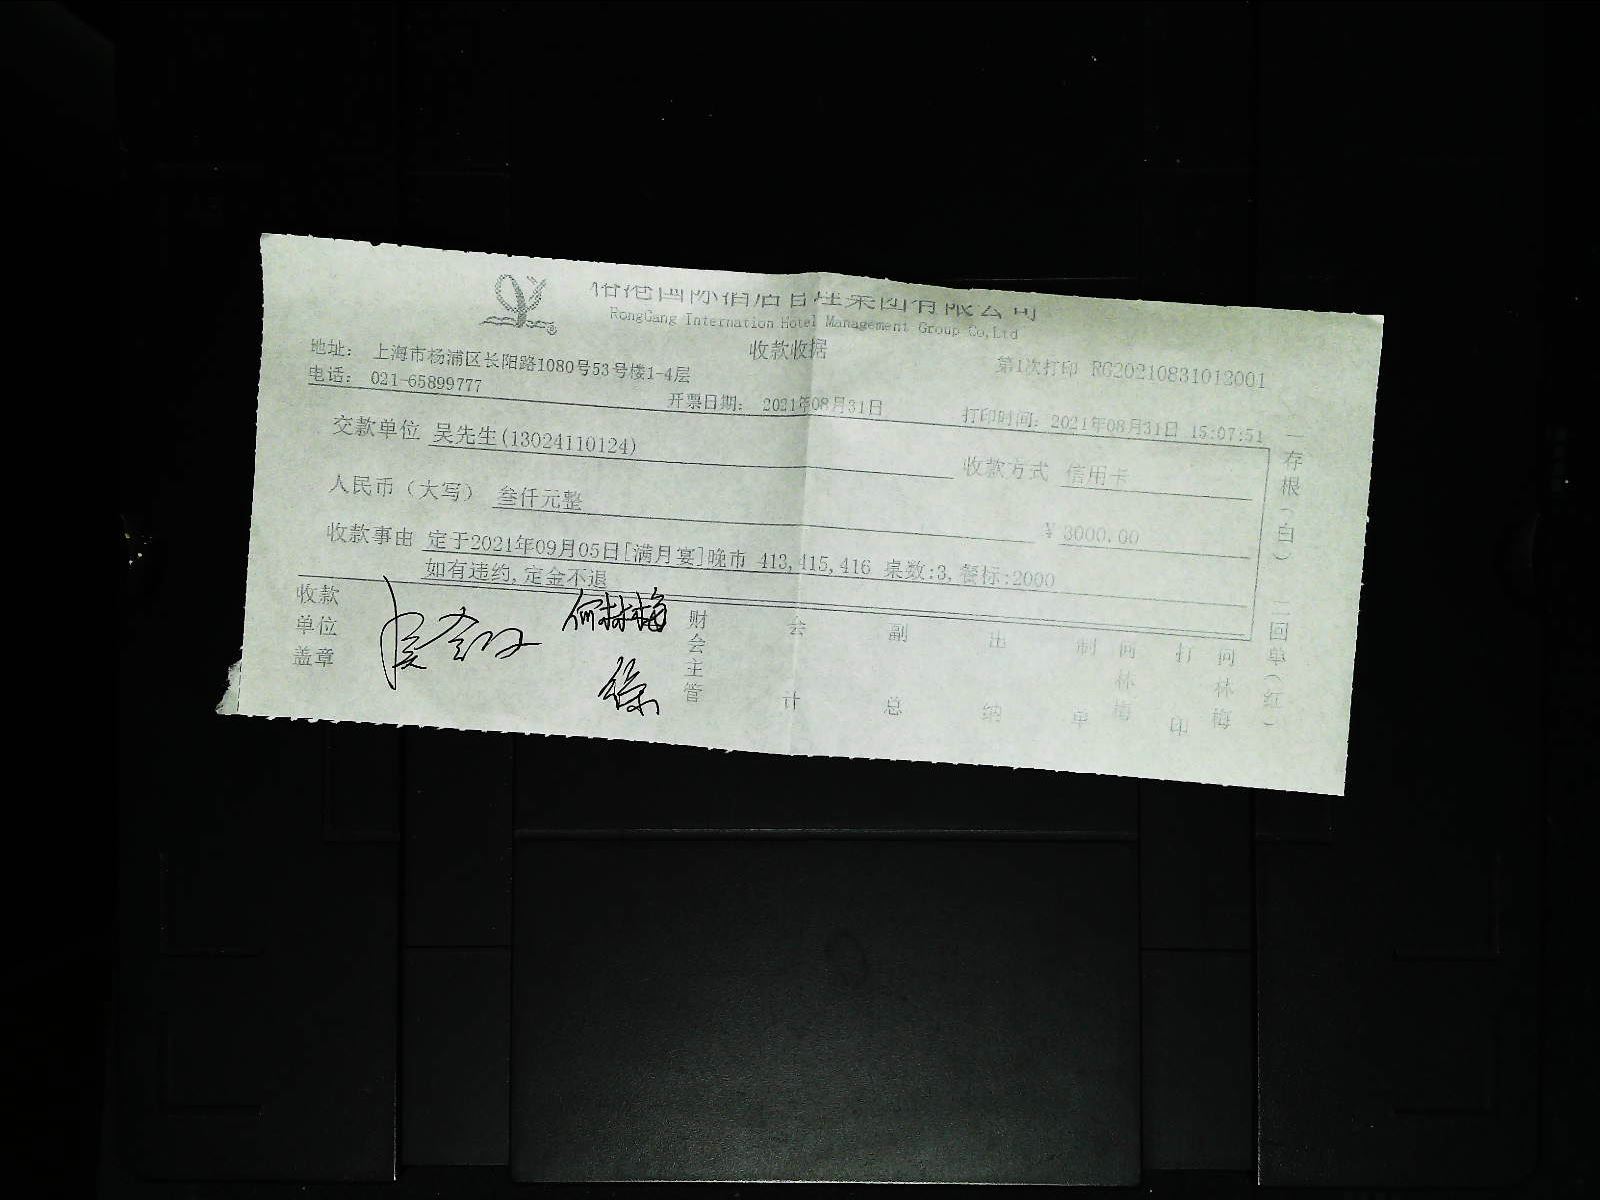 国际酒店管理集团有限公司
RongGang Internation Hotel Management Group Co,Ltd
收款收据
地址： 上海市杨浦区长阳路1080号53号楼1-4层
第1次打印 RG20210831012001
电话： 021-65899777
开票日期： 2021年08月31日
打印时间：2021年08月31日 15:07:51
交款单位 吴先生(13024110124)
收款方式 信用卡
人民币（大写） 叁仟元整
￥3000.00
收款事由 定于2021年09月05日[满月宴]晚市 413,415,416 桌数:3,餐标:2000
如有违约,定金不退
收款单位盖章
何林梅
徐
财会主管
会计
副总
出纳
制单 何林梅
打印 何林梅
一存根(白)
回单(红)